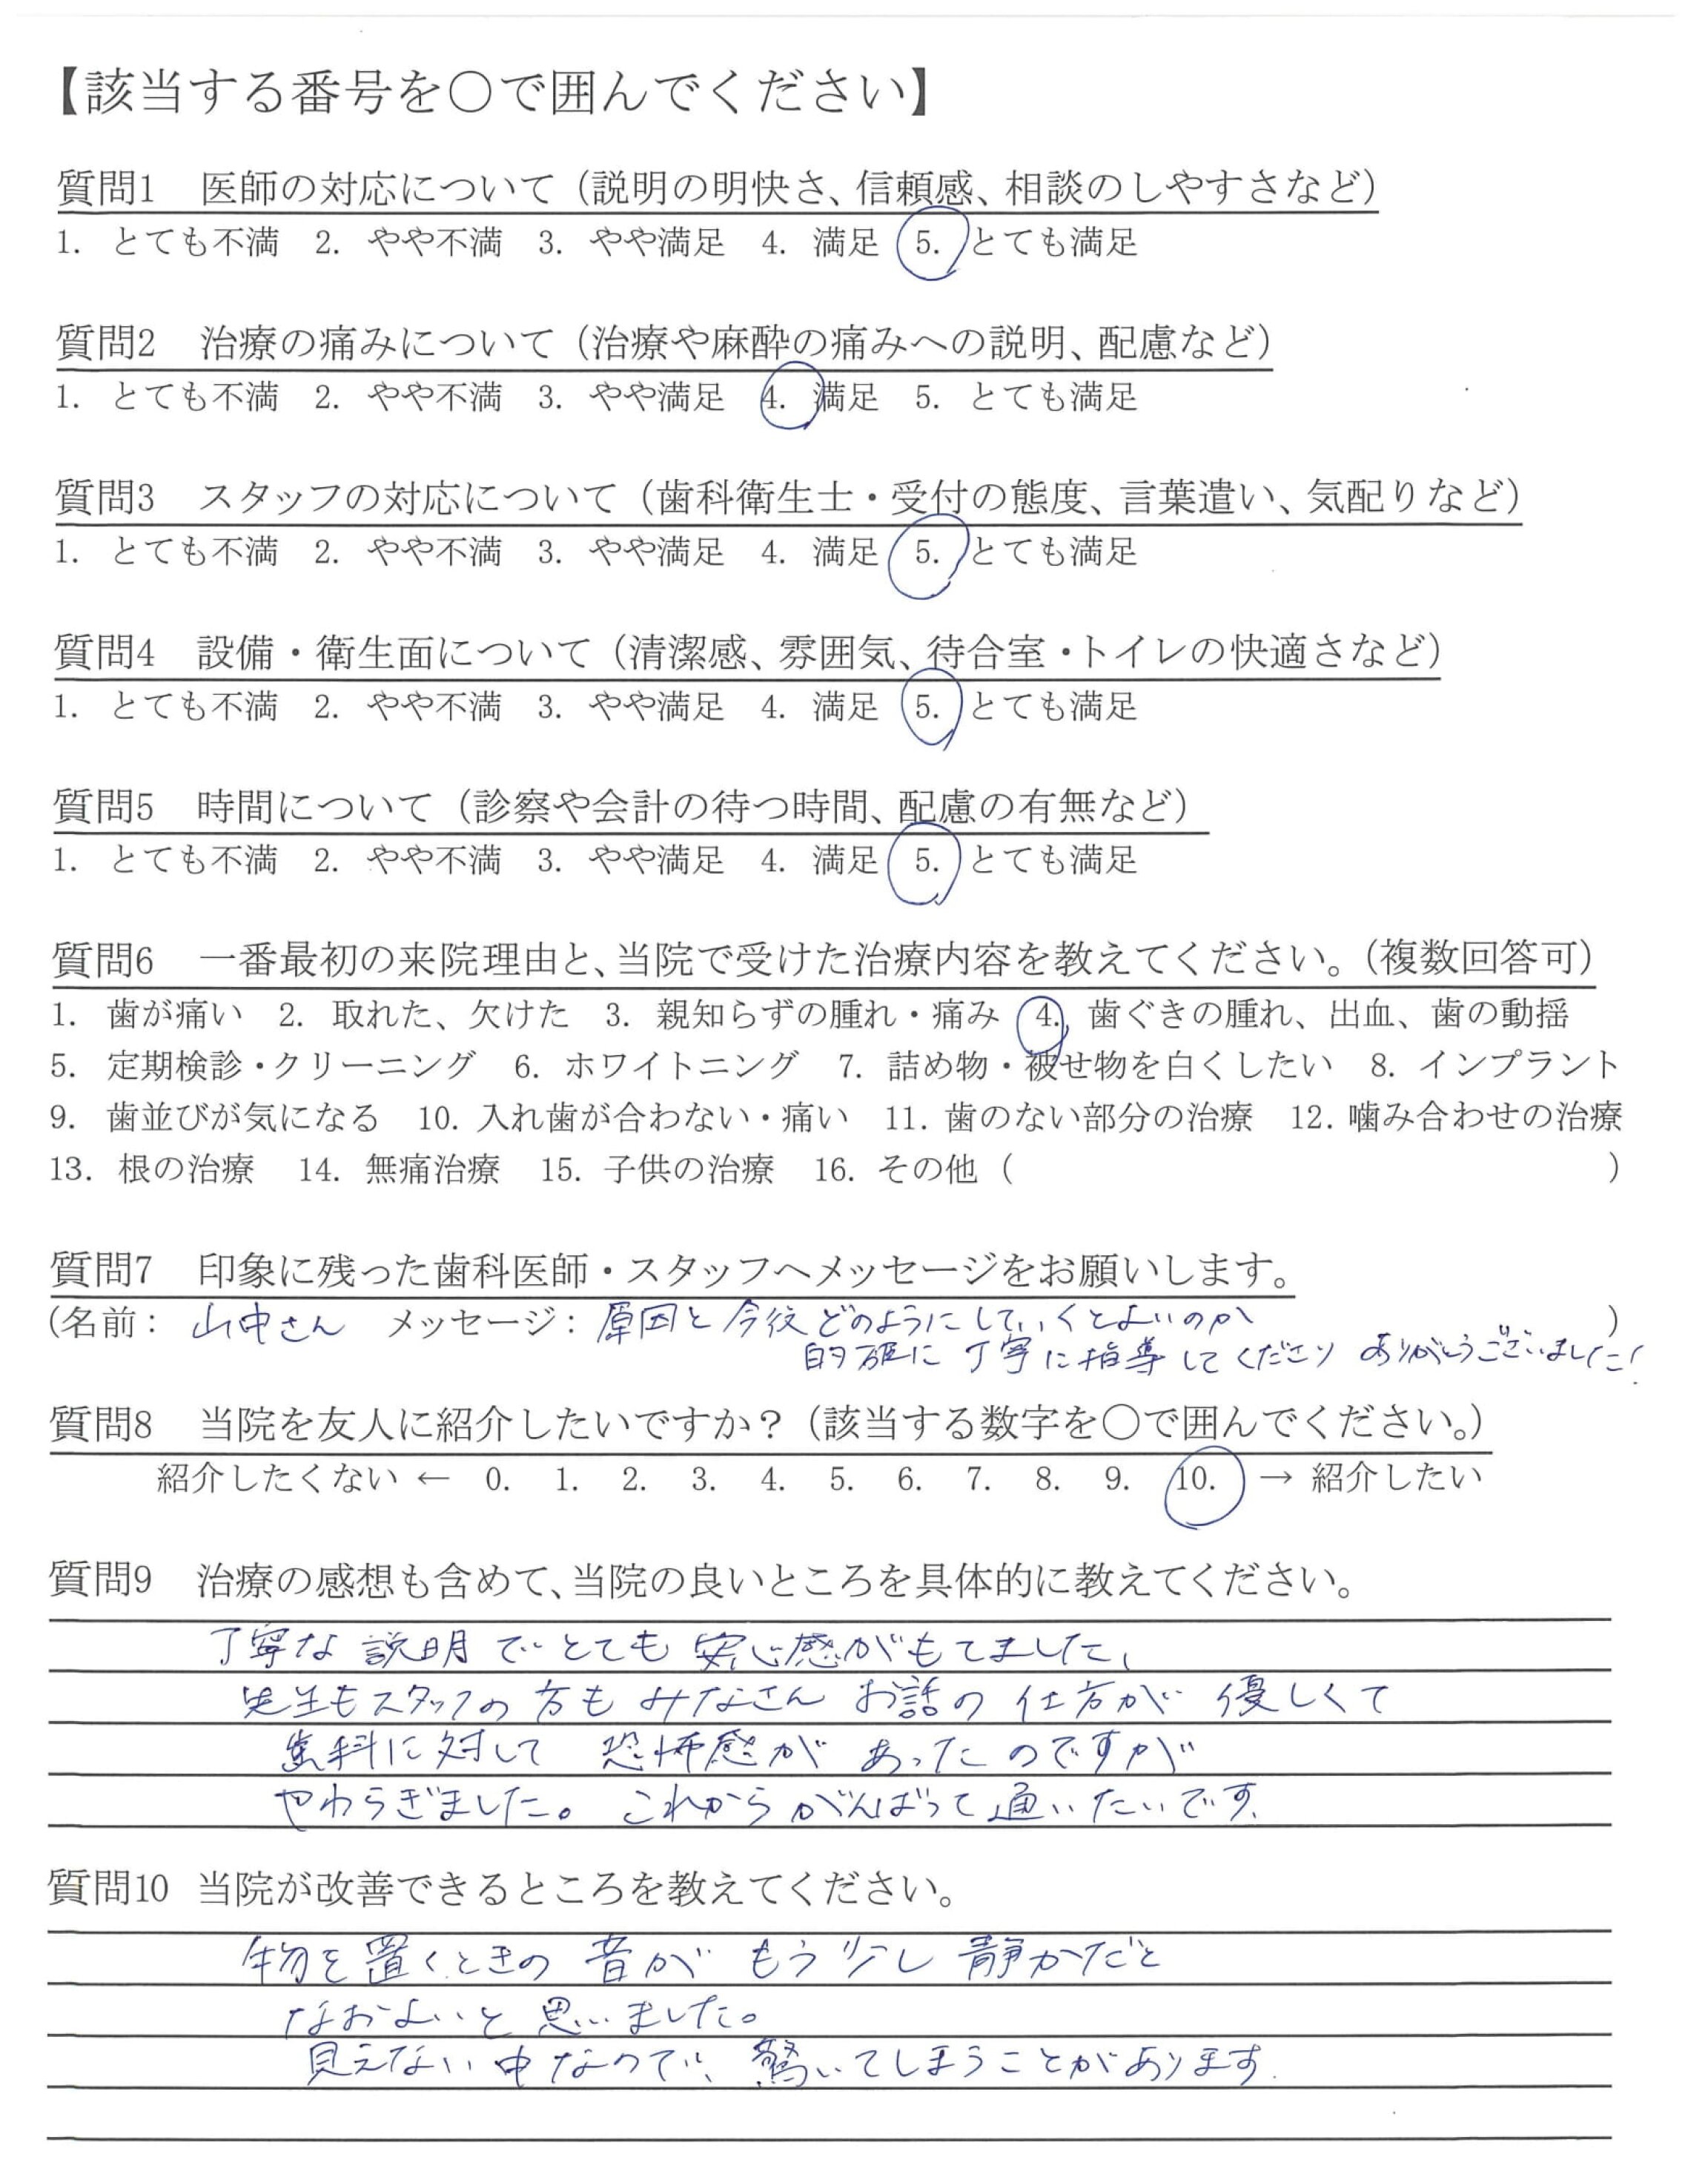 【該当する番号を〇で囲んでください】
質問1 医師の対応について（説明の明快さ、信頼感、相談のしやすさなど）
1. とても不満 2. やや不満 3. やや満足 4. 満足 5. とても満足
質問2 治療の痛みについて（治療や麻酔の痛みへの説明、配慮など）
1. とても不満 2. やや不満 3. やや満足 4. 満足 5. とても満足
質問3 スタッフの対応について（歯科衛生士・受付の態度、言葉遣い、気配りなど）
1. とても不満 2. やや不満 3. やや満足 4. 満足 5. とても満足
質問4 設備・衛生面について（清潔感、雰囲気、待合室・トイレの快適さなど）
1. とても不満 2. やや不満 3. やや満足 4. 満足 5. とても満足
質問5 時間について（診察や会計の待つ時間、配慮の有無など）
1. とても不満 2. やや不満 3. やや満足 4. 満足 5. とても満足
質問6 一番最初の来院理由と、当院で受けた治療内容を教えてください。（複数回答可）
1. 歯が痛い 2. 取れた、欠けた 3. 親知らずの腫れ・痛み 4. 歯ぐきの腫れ、出血、歯の動揺
5. 定期検診・クリーニング 6. ホワイトニング 7. 詰め物・被せ物を白くしたい 8. インプラント
9. 歯並びが気になる 10. 入れ歯が合わない・痛い 11. 歯のない部分の治療 12. 噛み合わせの治療
13. 根の治療 14. 無痛治療 15. 子供の治療 16. その他（ ）
質問7 印象に残った歯科医師・スタッフへメッセージをお願いします。
（名前： 山中さん メッセージ： 原因と今後どのようにしていくとよいのか ）
的確に丁寧に指導してくださり ありがとうございました！
質問8 当院を友人に紹介したいですか？（該当する数字を〇で囲んでください。）
紹介したくない ← 0. 1. 2. 3. 4. 5. 6. 7. 8. 9. 10. → 紹介したい
質問9 治療の感想も含めて、当院の良いところを具体的に教えてください。
丁寧な説明でとても安心感がもてました、
先生もスタッフの方もみなさんお話の仕方が優しくて
歯科に対して恐怖感があったのですが
やわらぎました。これからがんばって通いたいです.
質問10 当院が改善できるところを教えてください。
物を置くときの音がもう少し静かだと
なおよいと思いました。
見えない中なので、驚いてしまうことがあります.